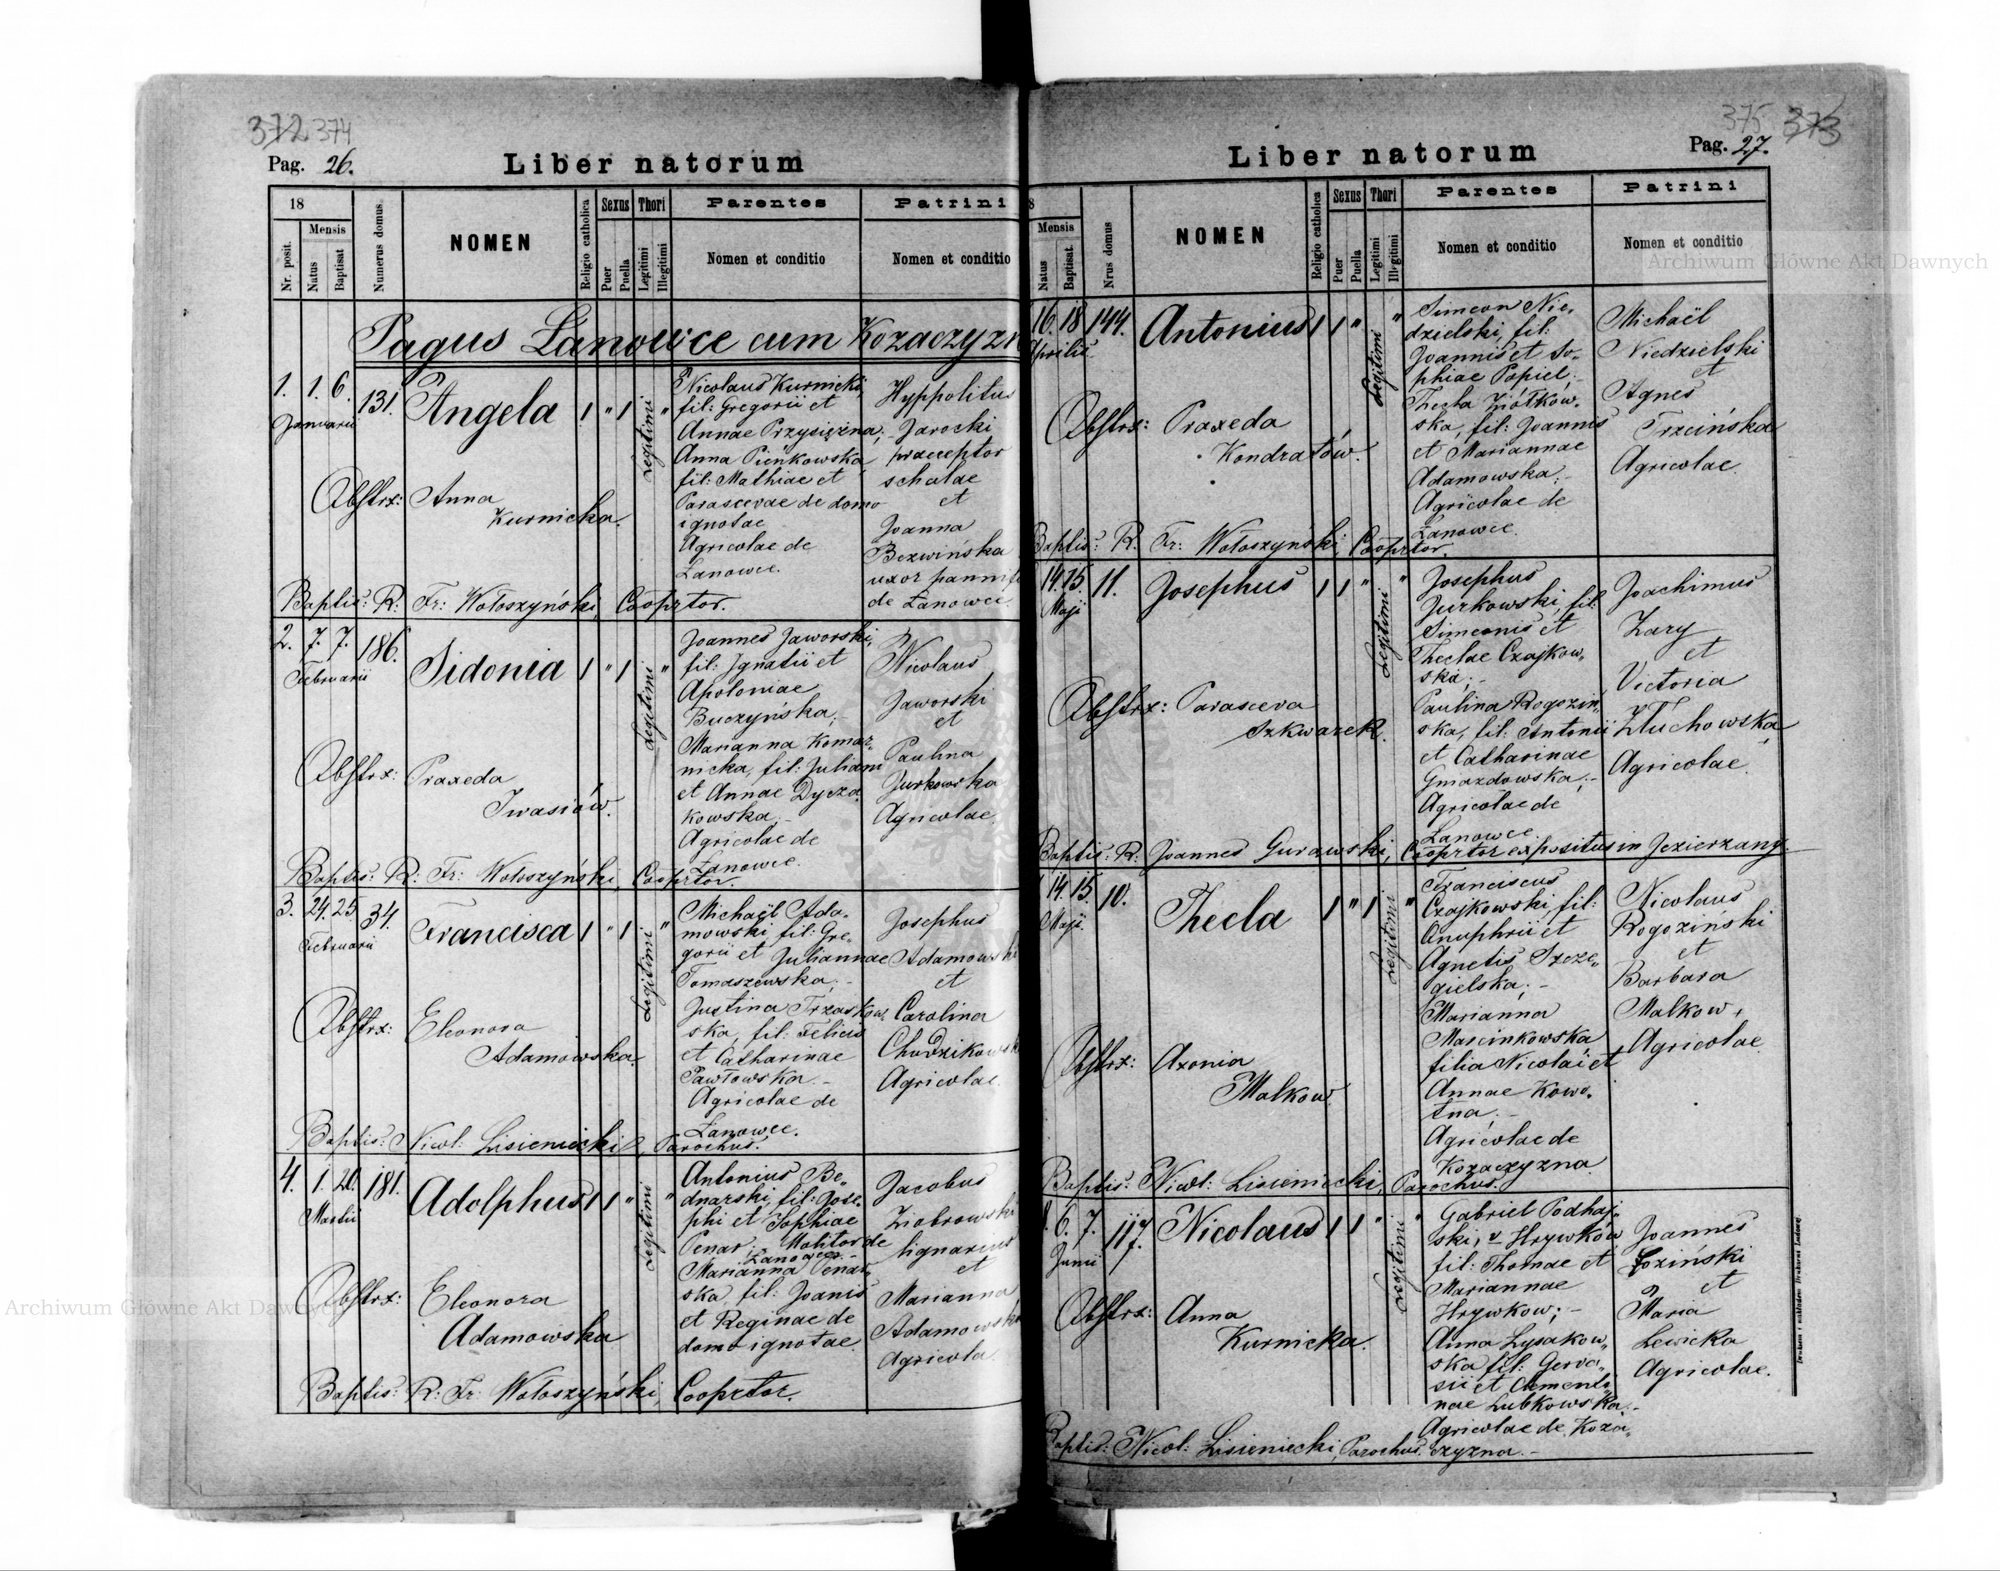 372 374
Pag. 26.
Liber natorum
18
Nr. posit.
Mensis
Natus
Baptisat
Numerus domus.
NOMEN
Religio catholica
Sexus
Puer
Puella
Thori
Legitimi
Illegitimi
Parentes
Nomen et conditio
Patrini
Nomen et conditio
Pagus Łanowice cum Kozaczyzn
1. 1. 6. 131. Angela 1 " 1 Legitimi "
Januarii
Nicolaus Kurnicki,
fil: Gregorii et
Annae Przysiężna;
Anna Pińkowska
fil: Mathiae et
Parascevae de domo
ignotae
Agricolae de
Łanowce.
Hyppolitus
Jarocki
praeceptor
scholae
et
Joanna
Bezwińska
uxor pannif
de Łanowce
Obstrx: Anna
Kurnicka.
Baptis: R: Fr: Wołoszyński, Cooprtor.
2. 7. 7. 186. Sidonia 1 " 1 Legitimi "
Februarii
Joannes Jaworski,
fil: Ignatii et
Apoloniae
Buczyńska;-
Marianna Komar-
nicka, fil: Juliani
et Annae Dycza
kowska;-
Agricolae de
Łanowce.
Nicolaus
Jaworski
et
Paulina
Jurkowska
Agricolae.
Obstrx: Praxeda
Iwasiów.
Baptis: R: Fr: Wołoszyński, Cooprtor.
3. 24. 25 34. Francisca 1 " 1 Legitimi "
Februarii
Michaël Ada-
mowski, fil: Gre-
gorii et Juliannae
Tomaszewska;-
Justina Trzaskow
ska, fil: Felicis
et Catharinae
Pawłowska.-
Agricolae de
Łanowce.
Josephus
Adamowski
et
Carolina
Chudzikowsk
Agricolae.
Obstrx: Eleonora
Adamowska.
Baptis: Nicol: Lisieniecki, Parochus.
4. 1. 20. 181. Adolphus 1 1 " Legitimi "
Martii
Antonius Be-
dnarski, fil: Jose-
phi et Sophiae
Penar; Molitor de
Łanowce.-
Marianna Penar-
ska fil: Joanis
et Reginae de
domo ignotae.
Jacobus
Ziobrowski
lignarius
et
Marianna
Adamowsk
Agricola.
Obstrx: Eleonora
Adamowska
Baptis: R: Fr: Wołoszyński, Cooprtor.
375 373
Pag. 27.
Liber natorum
8
Mensis
Natus
Baptisat
Nrus domus
NOMEN
Religio catholica
Sexus
Puer
Puella
Thori
Legitimi
Illegitimi
Parentes
Nomen et conditio
Patrini
Nomen et conditio
16. 18 144. Antonius 1 1 " Legitimi "
Aprilis
Simeon Nie-
dzielski, fil:
Joannis et So-
phiae Popiel;-
Thecla Ziółkow-
ska, fil: Joannis
et Mariannae
Adamowska;-
Agricolae de
Łanowce.
Michaël
Niedzielski
et
Agnes
Trzcińska
Agricolae
Obstrx: Praxeda
Kondratów.
Baptis: R. Fr: Wołoszyński, Cooprtor.
14. 15. 11. Josephus 1 1 " Legitimi "
Maji
Josephus
Jurkowski, fil:
Simeonis et
Theclae Czajkow-
ska;-
Paulina Rogoziń-
ska, fil: Antonii
et Catharinae
Gniazdowska;-
Agricolae de
Łanowce.
Joachimus
Zary
et
Victoria
Złuchowska
Agricolae.
Obstrx: Parasceva
Szkwarek.
Baptis: R: Joannes Gurawski, Cooprtor expositus in Jezierzany.
14. 15. 10. Thecla 1 " 1 Legitimi "
Maji
Franciscus
Czajkowski, fil:
Onuphrii et
Agnetis Szcze-
gielska;-
Marianna
Marcinkowska
filia Nicolai et
Annae Kowa-
lna;-
Agricolae de
Kozaczyzna.
Nicolaus
Rogoziński
et
Barbara
Malkow,
Agricolae
Obstrx: Axonia
Malkow.
Baptis: Nicol: Lisieniecki, Parochus.
6. 7. 117. Nicolaus 1 1 " Legitimi "
Junii
Gabriel Podhaj-
ski, v Hrywków
fil: Thomae et
Mariannae
Hrywkow;-
Anna Łysakow-
ska fil: Gerva-
sii et Clementi-
nae Lubkowska.-
Agricolae de Koza-
czyzna.-
Joannes
Łoziński
et
Maria
Lewicka
Agricolae.
Obstrx: Anna
Kurnicka.
Baptis: Nicol: Lisieniecki, Parochus.
Archiwum Główne Akt Dawnych
Archiwum Główne Akt Dawnych